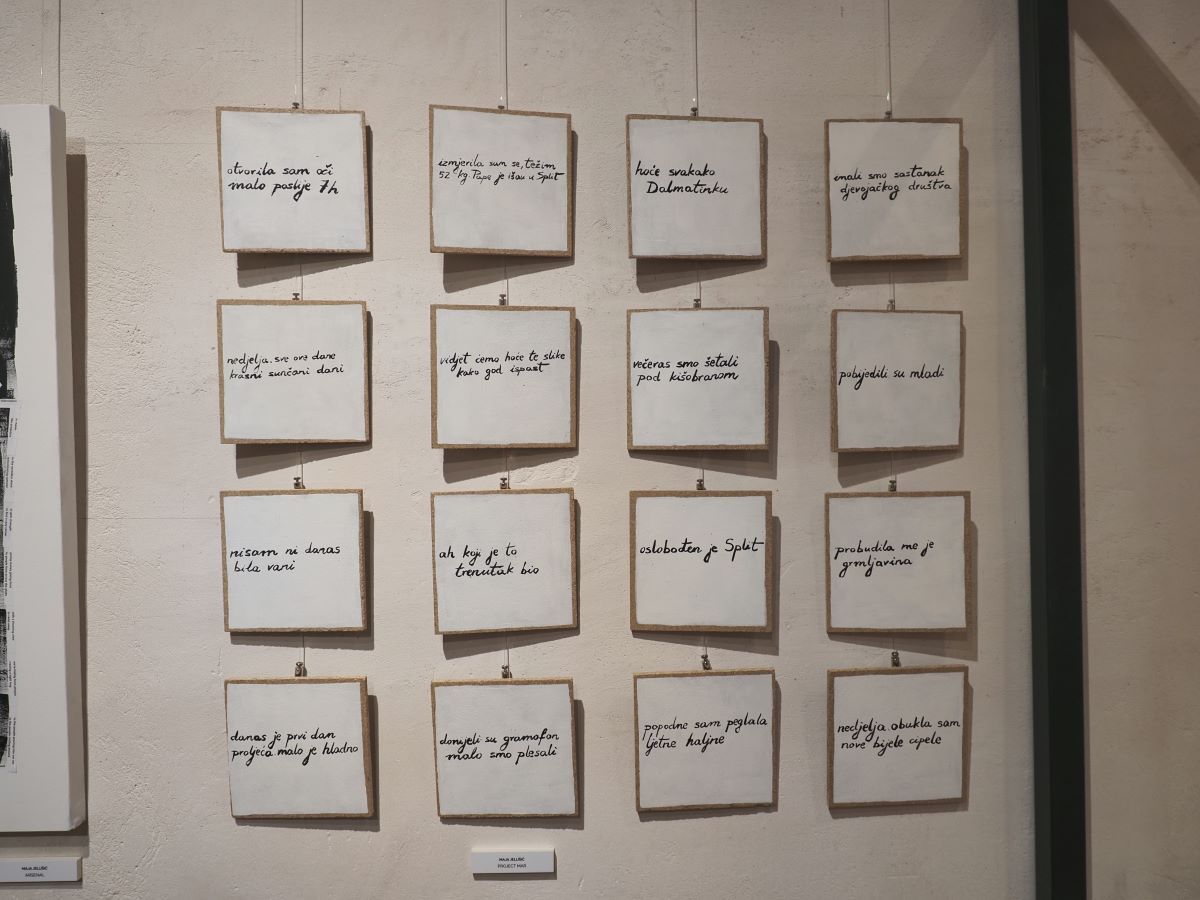 otvorila sam oči
malo poslije 7h
izmjerila sam se, težim
52 kg Papa je išau u Split
hoće svakako
Dalmatinku
imali smo sastanak
djevojačkog društva
nedjelja. sve ove dane
krasni sunčani dani
vidjet ćemo hoće te slike
kako god ispast
večeras smo šetali
pod kišobranom
pobijedili su mladi
nisam ni danas
bila vani
ah koji je to
trenutak bio
oslobođen je Split
probudila me je
grmljavina
danas je prvi dan
proljeća malo je hladno
donijeli su gramofon
malo smo plesali
popodne sam peglala
ljetne haljine
nedjelja. obukla sam
nove bijele cipele
MAJA JELUŠIĆ
ARSENAL
MAJA JELUŠIĆ
PROJECT MAR